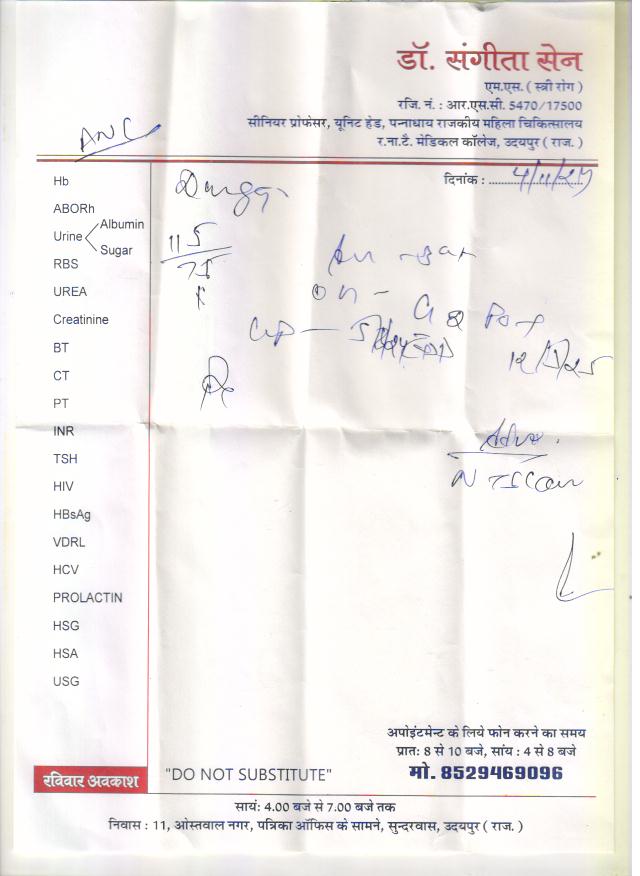 डॉ. संगीता सेन
एम.एस. ( स्त्री रोग )
रजि. नं. : आर.एस.सी. 5470/17500
सीनियर प्रोफेसर, यूनिट हेड, पन्नाधाय राजकीय महिला चिकित्सालय
र.ना.टै. मेडिकल कॉलेज, उदयपुर ( राज. )
ANC
दिनांक :
Hb
ABORh
Urine Albumin
Sugar
RBS
UREA
Creatinine
BT
CT
PT
INR
TSH
HIV
HBsAg
VDRL
HCV
PROLACTIN
HSG
HSA
USG
115
75
Adv.
अपोइंटमेन्ट के लिये फोन करने का समय
प्रातः 8 से 10 बजे, सांय : 4 से 8 बजे
मो. 8529469096
रविवार अवकाश
"DO NOT SUBSTITUTE"
सायं: 4.00 बजे से 7.00 बजे तक
निवास : 11, ओस्तवाल नगर, पत्रिका ऑफिस के सामने, सुन्दरवास, उदयपुर ( राज. )